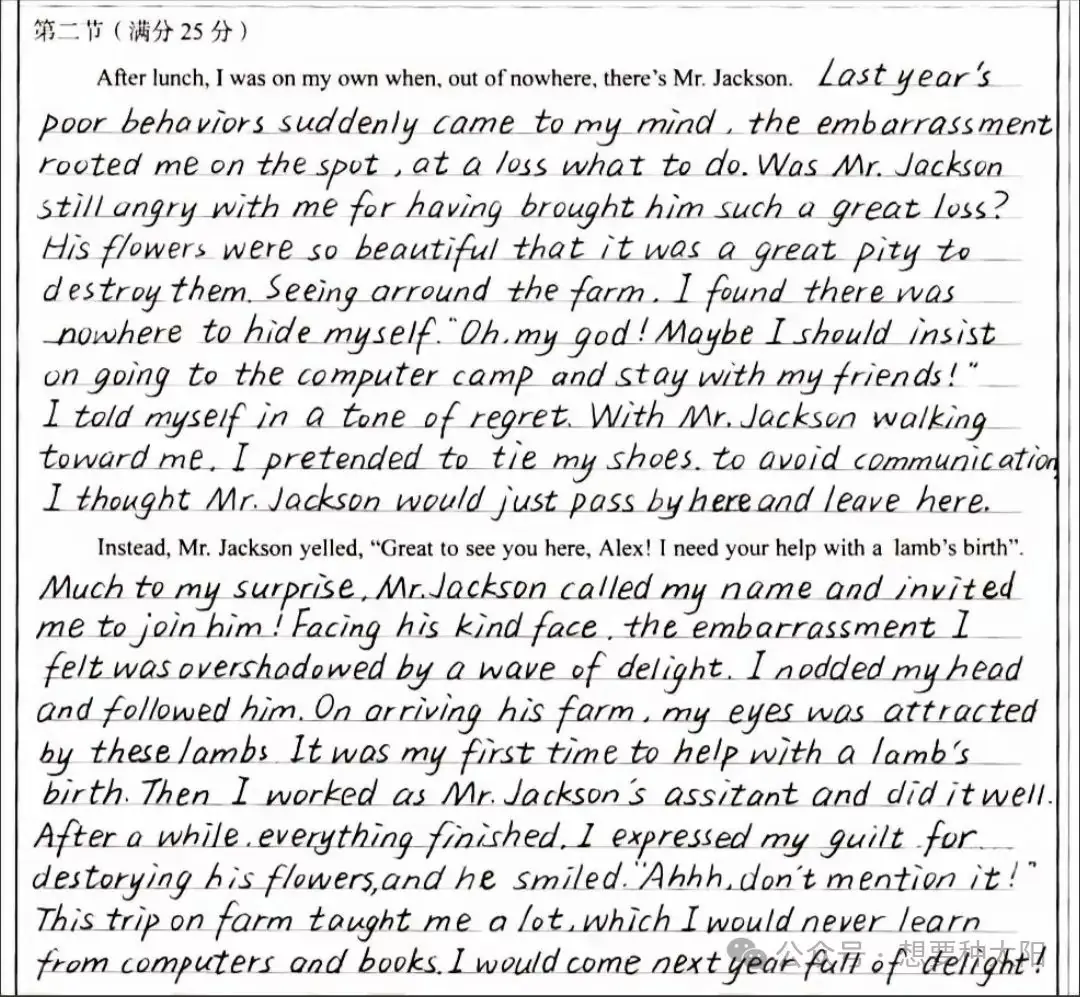 第二节（满分 25 分）
After lunch, I was on my own when, out of nowhere, there's Mr. Jackson. Last year's
poor behaviors suddenly came to my mind, the embarrassment
rooted me on the spot, at a loss what to do. Was Mr. Jackson
still angry with me for having brought him such a great loss?
His flowers were so beautiful that it was a great pity to
destroy them. Seeing arround the farm, I found there was
nowhere to hide myself. "Oh, my god! Maybe I should insist
on going to the computer camp and stay with my friends!"
I told myself in a tone of regret. With Mr. Jackson walking
toward me, I pretended to tie my shoes, to avoid communication,
I thought Mr. Jackson would just pass by here and leave here.
Instead, Mr. Jackson yelled, "Great to see you here, Alex! I need your help with a lamb's birth".
Much to my surprise, Mr. Jackson called my name and invited
me to join him! Facing his kind face, the embarrassment I
felt was overshadowed by a wave of delight. I nodded my head
and followed him. On arriving his farm, my eyes was attracted
by these lambs. It was my first time to help with a lamb's
birth. Then I worked as Mr. Jackson's assitant and did it well.
After a while, everything finished. I expressed my guilt for
destorying his flowers, and he smiled. "Ahhh, don't mention it!"
This trip on farm taught me a lot, which I would never learn
from computers and books. I would come next year full of delight!
公众号：想要种太阳